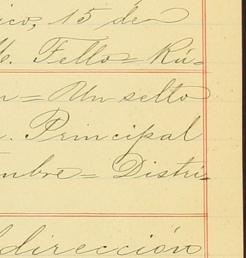 ico, 15 de
M. Fello= Rú-
n= Un selto
. Principal
mbre= Distri-
dirección